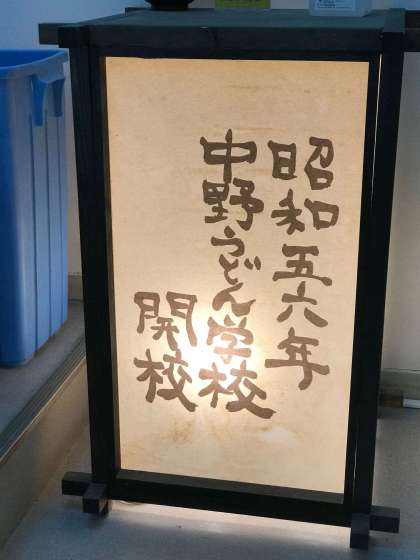 昭和五六年
中野うどん学校
開校